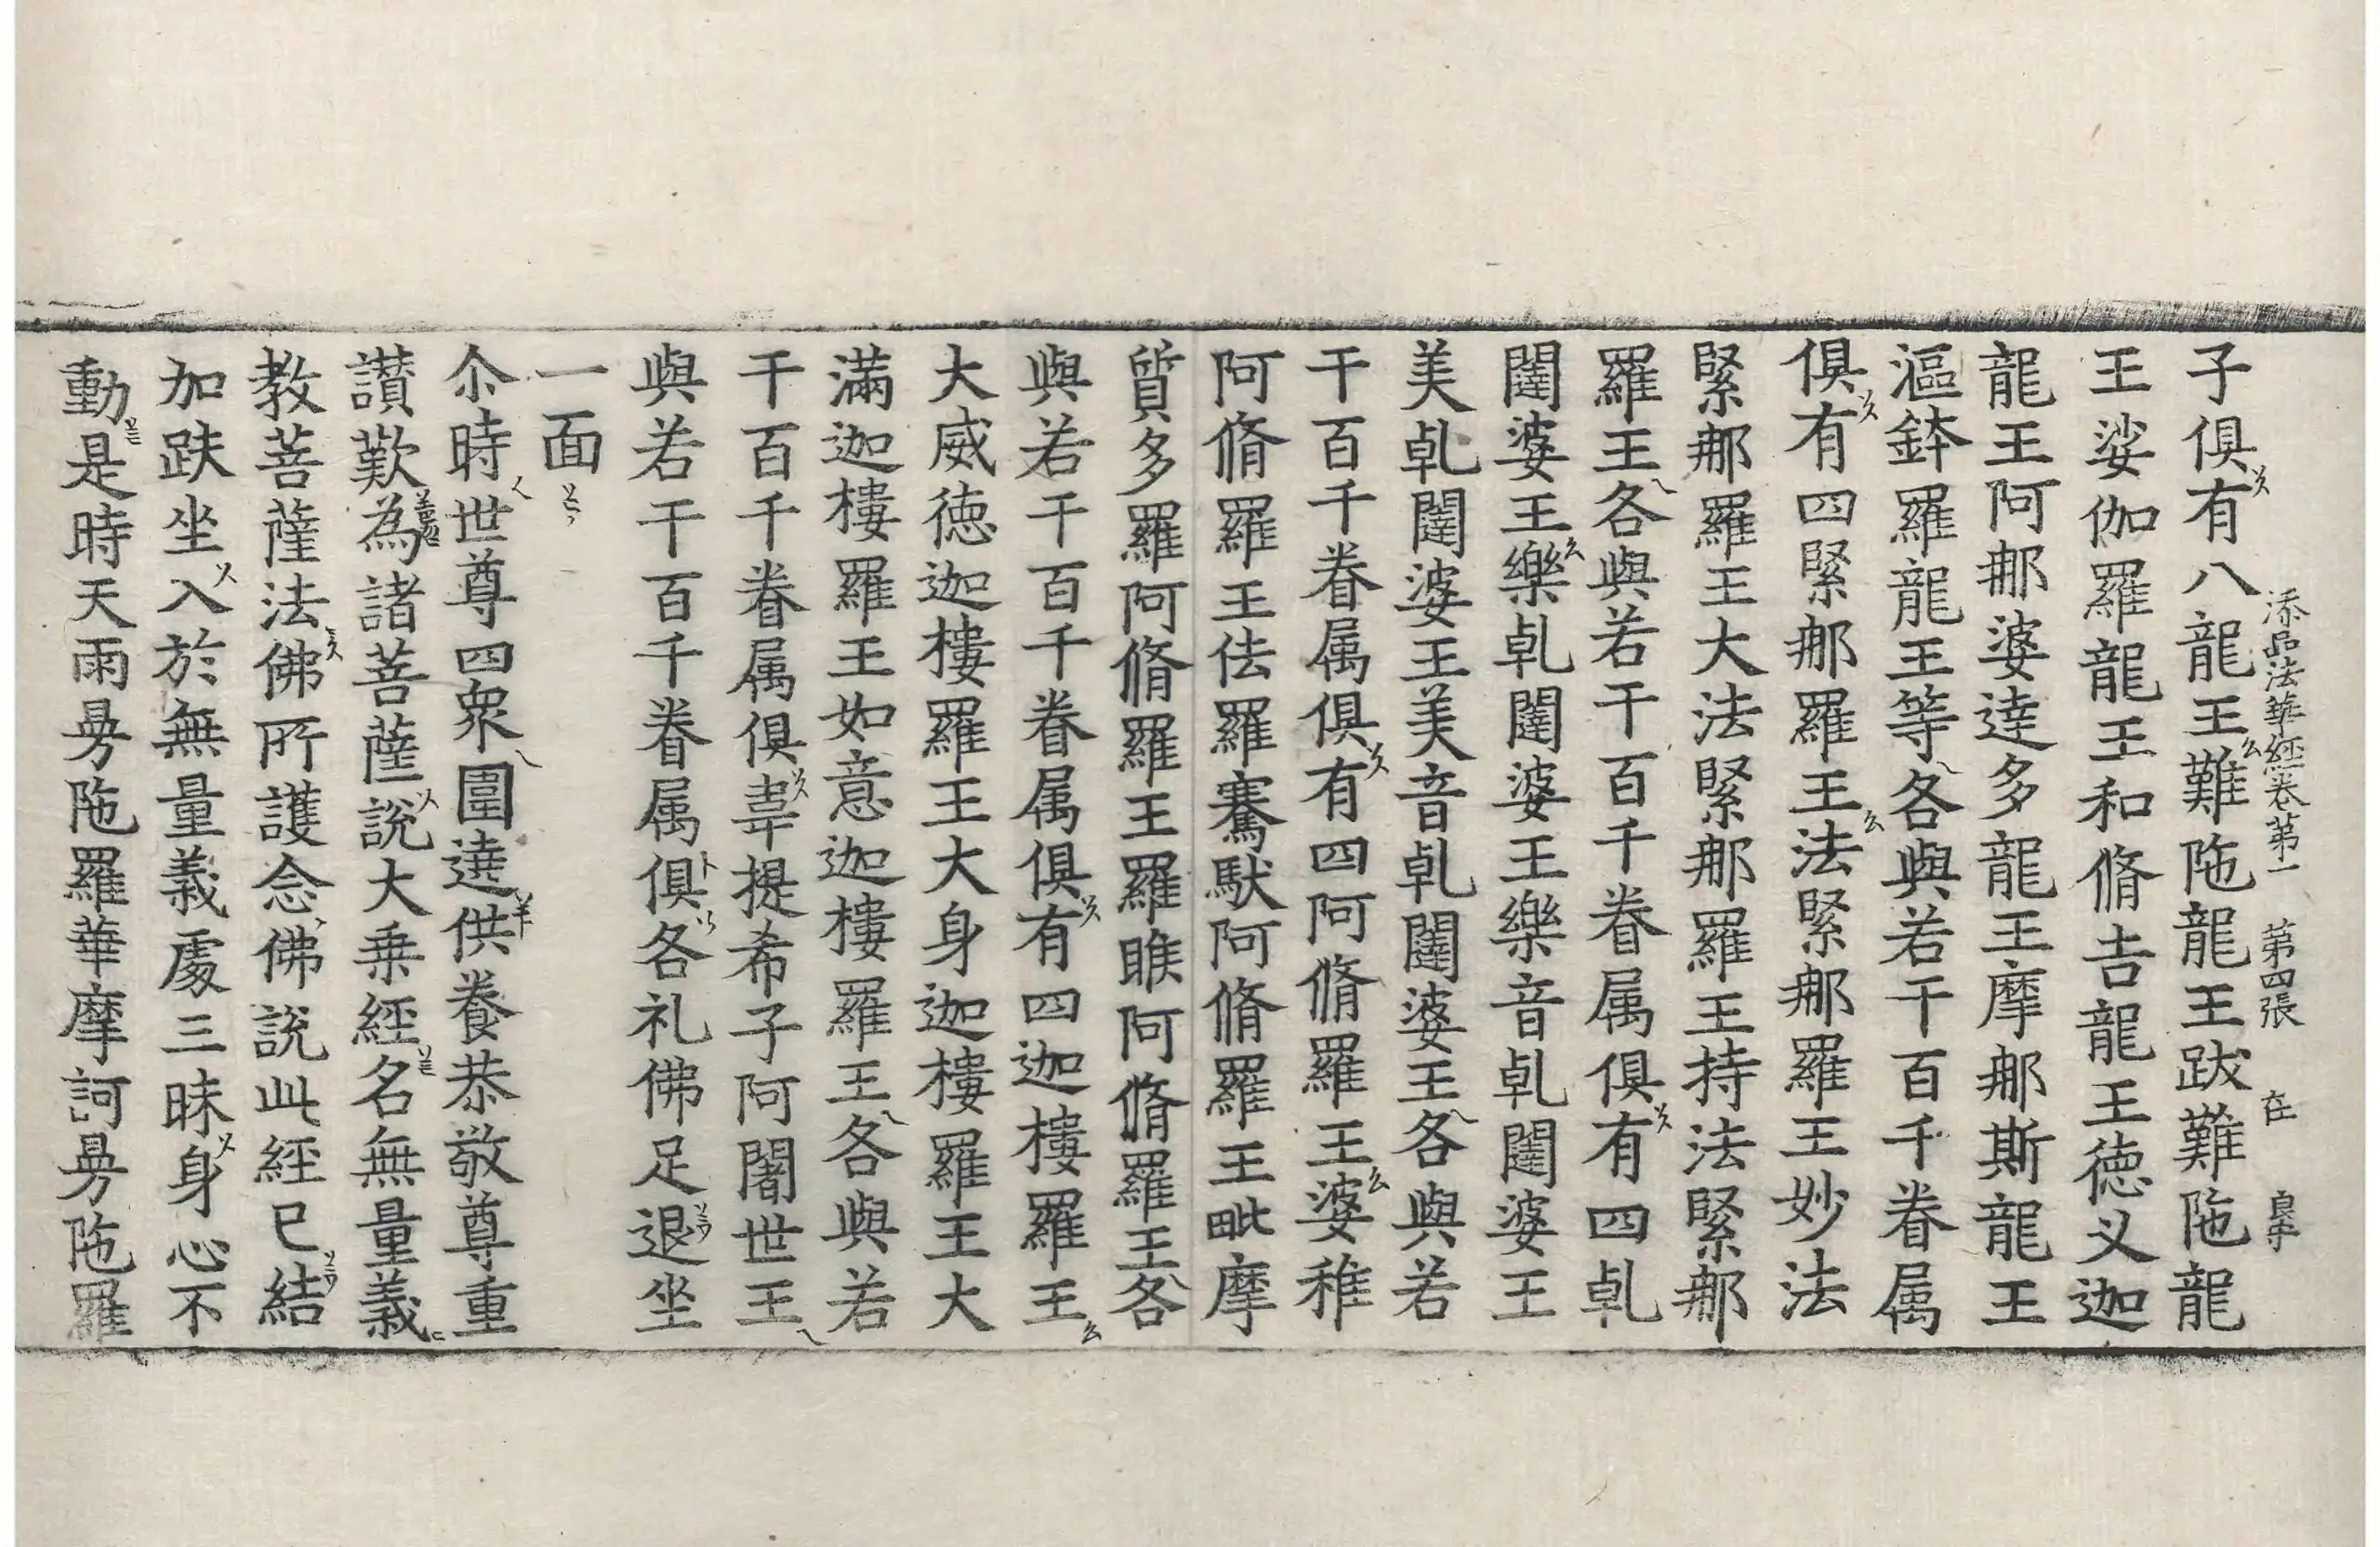 添品法華經卷第一　第四張　在
子俱有八龍王難陁龍王跋難陁龍
王娑伽羅龍王和脩吉龍王德叉迦
龍王阿那婆達多龍王摩那斯龍王
漚鉢羅龍王等各與若干百千眷属
俱有四緊那羅王法緊那羅王妙法
緊那羅王大法緊那羅王持法緊那
羅王各與若干百千眷属俱有四乹
闥婆王樂乹闥婆王樂音乹闥婆王
美乹闥婆王美音乹闥婆王各與若
干百千眷属俱有四阿脩羅王婆稚
阿脩羅王佉羅騫馱阿脩羅王毗摩
質多羅阿脩羅王羅睺阿脩羅王各
與若干百千眷属俱有四迦樓羅王
大威德迦樓羅王大身迦樓羅王大
滿迦樓羅王如意迦樓羅王各與若
干百千眷属俱韋提希子阿闍世王
與若干百千眷属俱各礼佛足退坐
一面
尒時世尊四衆圍遶供養恭敬尊重
讃歎為諸菩薩說大乗經名無量義
教菩薩法佛所護念佛說此經已結
加趺坐入於無量義處三昧身心不
動是時天雨曼陁羅華摩訶曼陁羅